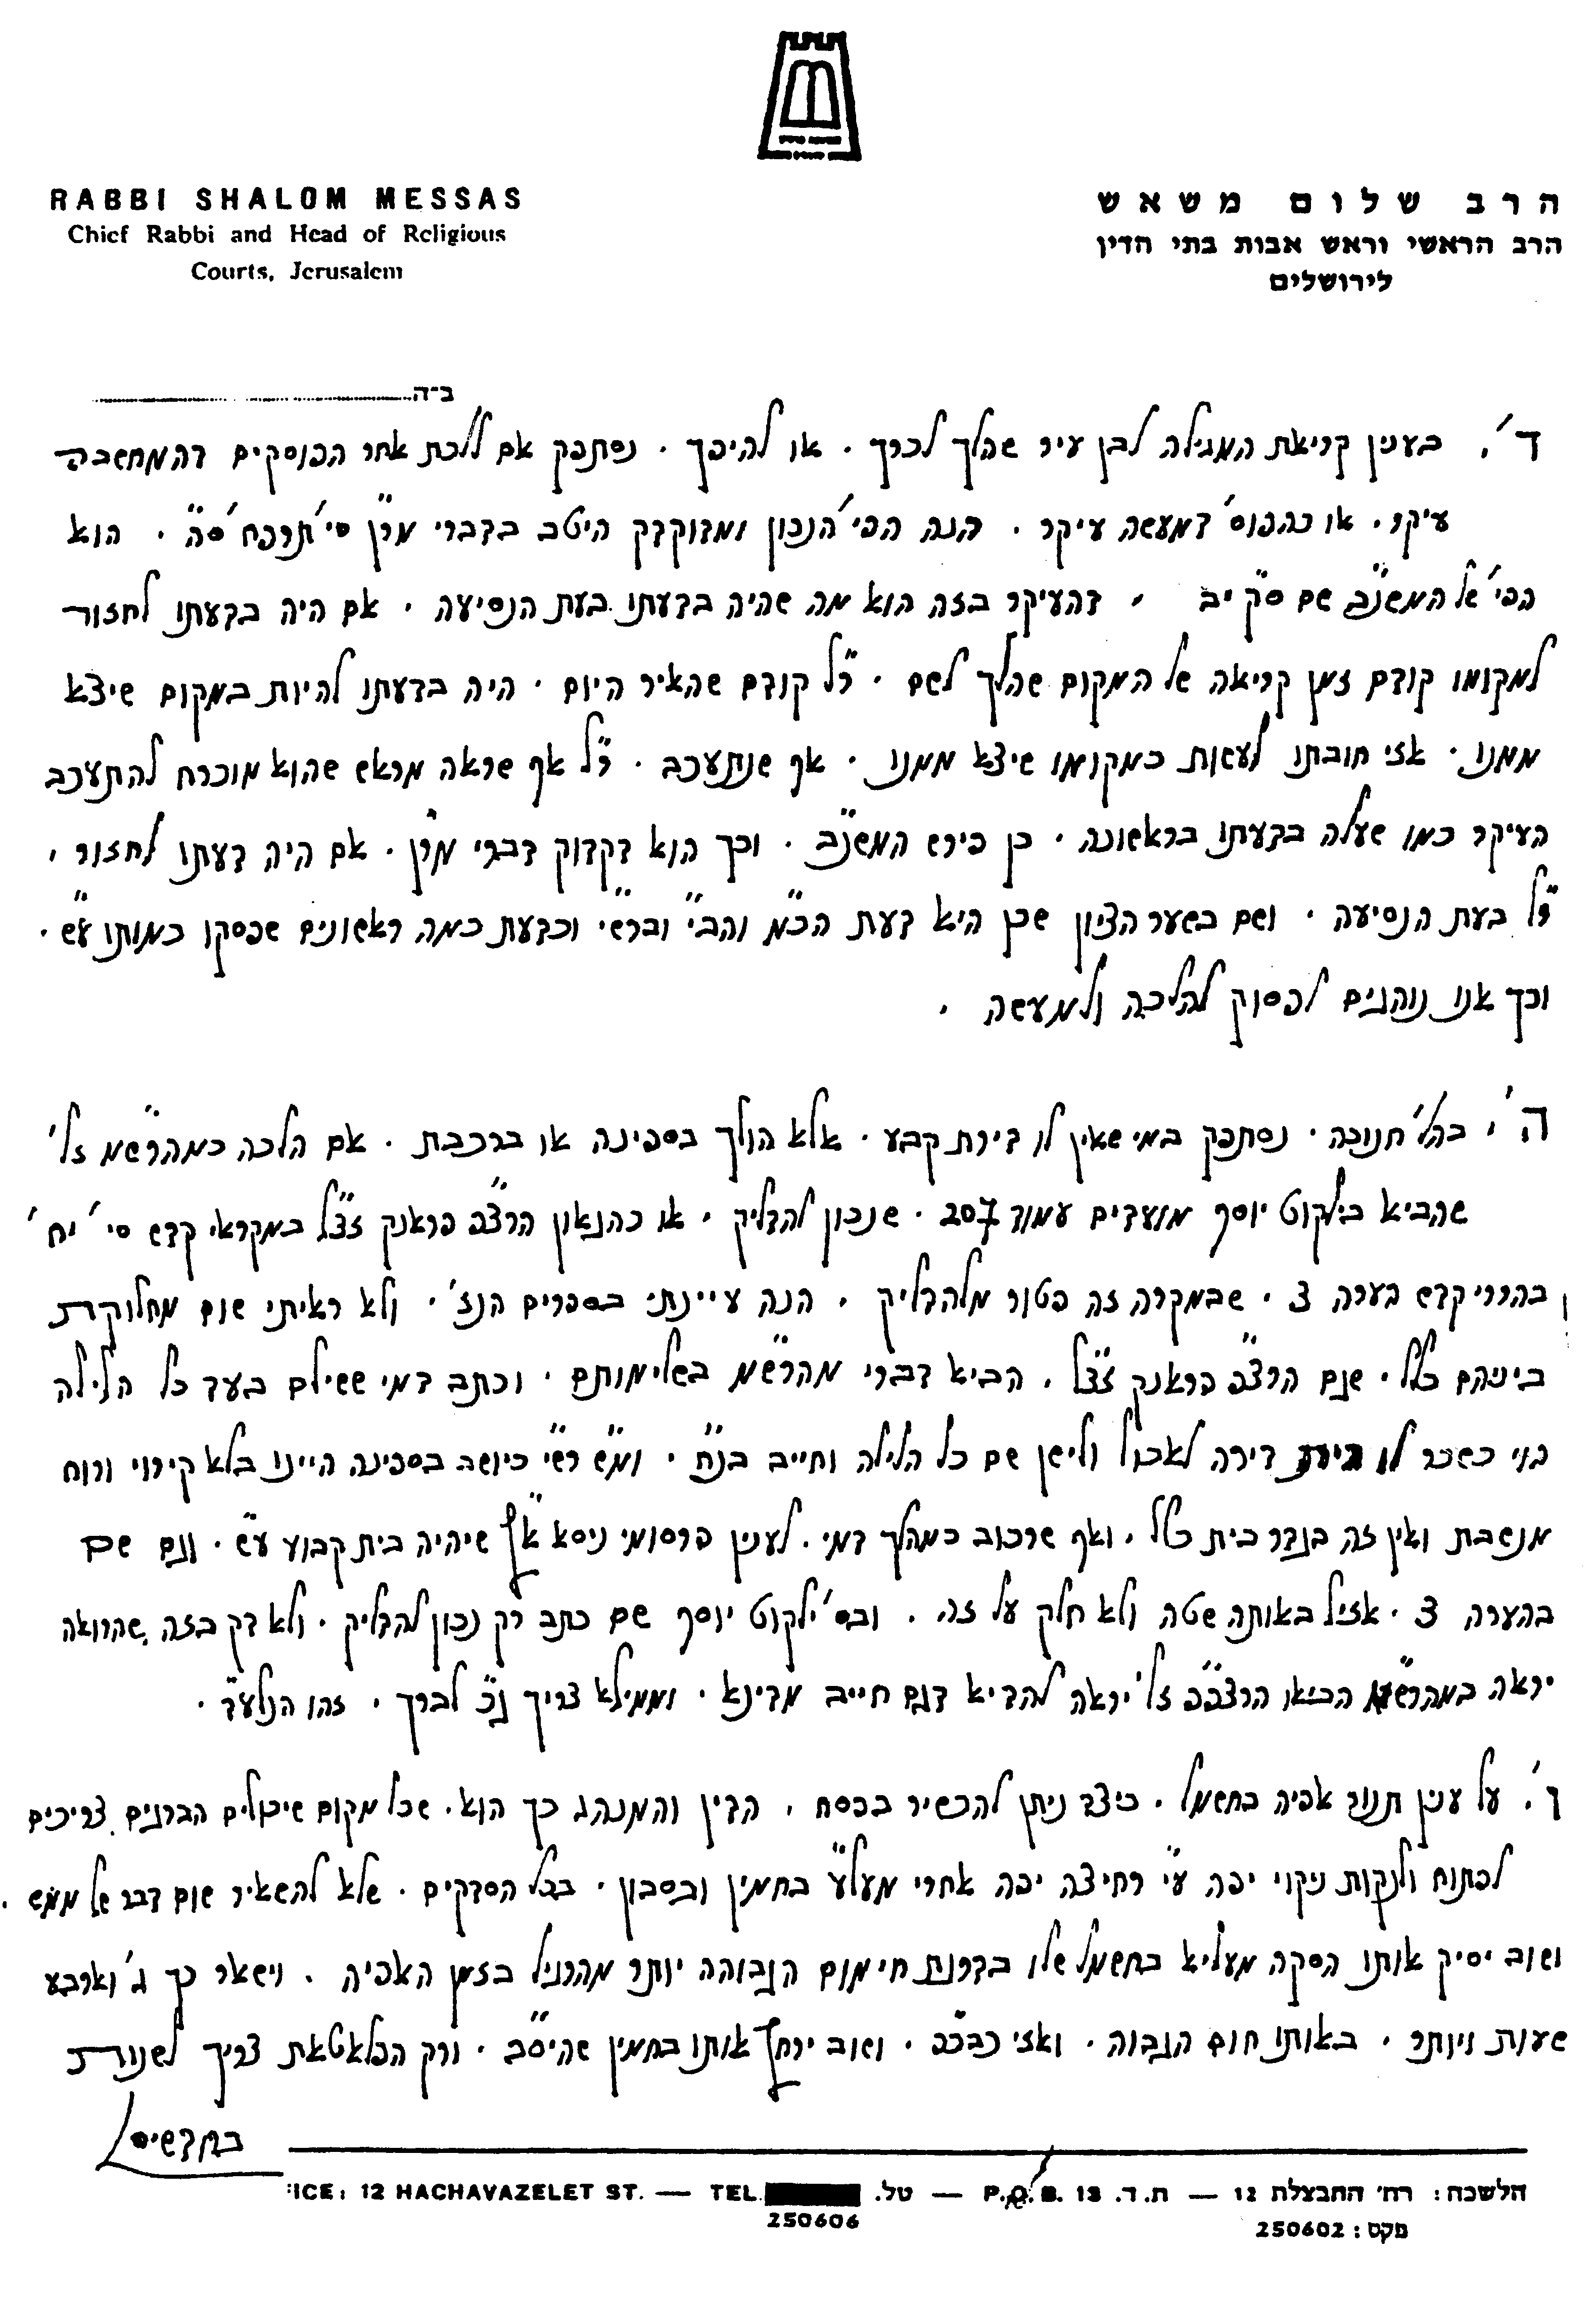 RABBI SHALOM MESSAS
Chief Rabbi and Head of Religious
Courts, Jerusalem
הרב שלום משאש
הרב הראשי וראש אבות בתי הדין
לירושלים
ב״ה
ד'. בענין קריאת המגילה לבן עיר שהלך לכרך. או להיפך. נסתפק אם ללכת אחר הפוסקים דהמחשבה
עיקר. או כהפוס' דמעשה עיקר. הנה הפי' הנכון ומדוקדק היטב בדברי מר״ן סי' תרפח' ס״ה. הוא
הפי' של המשנ״ב שם ס״ק י״ב, דהעיקר בזה הוא מה שהיה בדעתו בעת הנסיעה. אם היה בדעתו לחזור
למקומו קודם זמן קריאה של המקום שהלך לשם. ר״ל קודם שהאיר היום. היה בדעתו להיות במקום שיצא
ממנו. אזי חובתו לעשות כמקומו שיצא ממנו. אף שנתעכב. ר״ל אף שראה מראש שהוא מוכרח להתעכב
העיקר כמו שעלה בדעתו בראשונה. כן פירש המשנ״ב. וכך הוא דקדוק דברי מר״ן. אם היה דעתו לחזור,
ר״ל בעת הנסיעה. ושם בשער הציון שכן היא דעת הכ״מ והב״י וברש״י וכדעת כמה ראשונים שפסקו כמותו ע״ש.
וכך אנו נוהגים לפסוק להלכה ולמעשה.
ה', בהל' חנוכה. נסתפק במי שאין לו דירת קבע. אלא הולך בספינה או ברכבת. אם הלכה כמהרש״ם ז״ל'
שהביא בילקוט יוסף מועדים עמוד 207. שנכון להדליק, או כהגאון הרצ״פ פראנק זצ״ל במקראי קדש סי' יח'
בהררי קדש בערה 3. שבמקרה זה פטור מלהדליק. הנה עיינתי בספרים הנז'. ולא ראיתי שום מחלוקת
ביניהם כלל. שגם הרצ״פ פראנק זצ״ל. הביא דברי מהרש״ם בשלימותם. וכתב דמי ששילם בעד כל הלילה
הוי כשכר לו דירה לאכול ולישן שם כל הלילה וחייב בנ״ח. ומ״ש רש״י כיושב בספינה היינו בלא קירוי ורוח
מנשבת ואין זה בגדר בית כלל. ואף שרכוב כמהלך דמי. לענין פרסומי ניסא א״צ שיהיה בית קבוע ע״ש. וגם שם
בהערה 3. אזיל באותה שטה ולא חלק על זה. ובס' ילקוט יוסף שם כתב רק נכון להדליק. ולא דק בזה, שהרואה
יראה במהרש״ם הביאו הרצפ״פ ז״ל יראה להדיא דגם חייב מדינא. וממילא צריך ג״כ לברך. זהו הנלע״ד.
ו'. על ענין תנור אפיה בחשמל. כיצד ניתן להכשיר בפסח. הדין והמנהג כך הוא. שכל מקום שיכולים הברגים צריכים
לפתוח ולנקות ניקוי יפה ע״י רחיצה יפה אחרי מעל״ע בחמין ובסבון. בכל הסדקים. שלא להשאיר שום דבר של ממש.
ושוב יסיק אותו הסקה מעליא בחשמל שלו בדרגת חימום הגבוהה יותר מהרגיל בזמן האפיה. וישאר כך ג' וארבע
שעות ויותר. באותו חום הגבוה. ואזי כבכ״פ. ושוב ירחץ אותו בחמין שהיס״ב. ורק הפלאטאת צריך לשנות
בחדשים
הלשכה: רח' החבצלת 12 — ת.ד. P.O.B. 13 — טל. TEL. — ICE: 12 HACHAVAZELET ST.
250606
פקס: 250602